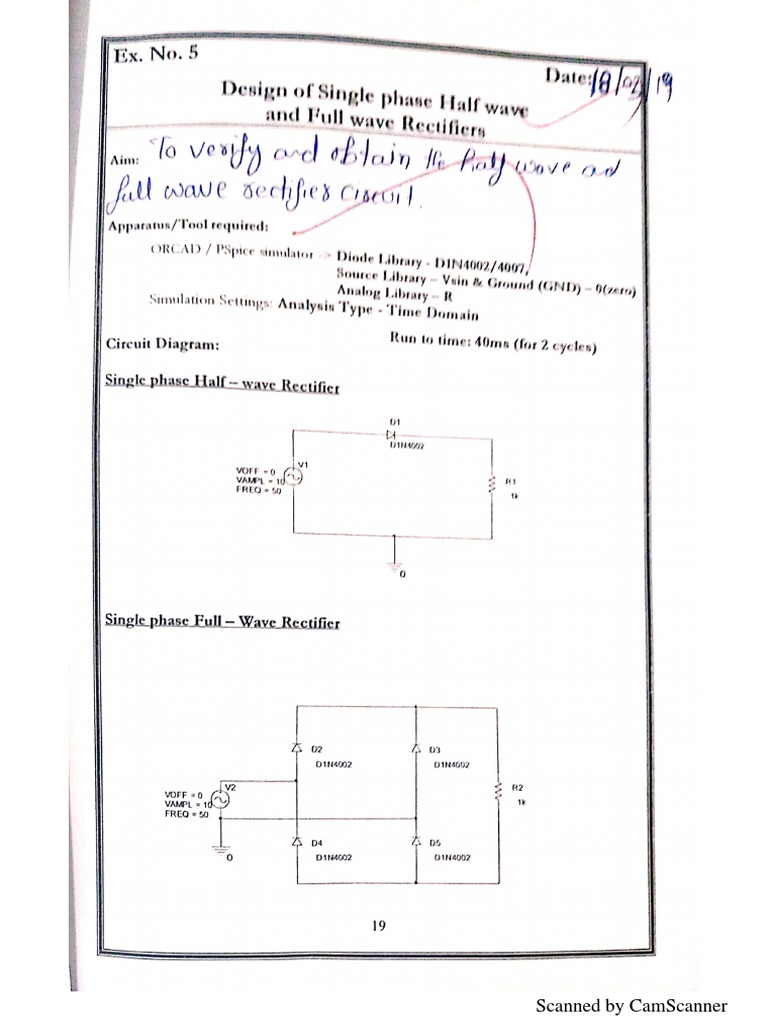 Ex. No. 5
Date: 18/02/19
Design of Single phase Half wave
and Full wave Rectifiers
Aim: To verify and obtain the half wave and
full wave rectifier circuit.
Apparatus/Tool required:
ORCAD / PSpice simulator -> Diode Library - D1N4002/4007,
Source Library – Vsin & Ground (GND) – 0(zero)
Analog Library – R
Simulation Settings: Analysis Type - Time Domain
Run to time: 40ms (for 2 cycles)
Circuit Diagram:
Single phase Half – wave Rectifier
D1
D1N4002
V1
VOFF = 0
VAMPL = 10
FREQ = 50
R1
1k
0
Single phase Full – Wave Rectifier
D2
D1N4002
D3
D1N4002
V2
VOFF = 0
VAMPL = 10
FREQ = 50
R2
1k
0
D4
D1N4002
D5
D1N4002
19
Scanned by CamScanner